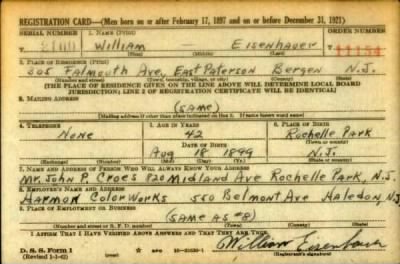 REGISTRATION CARD—(Men born on or after February 17, 1897 and on or before December 31, 1921)
SERIAL NUMBER 1. NAME (Print) ORDER NUMBER
William Eisenhauer 11154
(First) (Middle) (Last)
2. PLACE OF RESIDENCE (Print)
305 Falmouth Ave, East Paterson Bergen N.J.
(Number and street) (Town, township, village, or city) (County) (State)
[THE PLACE OF RESIDENCE GIVEN ON THE LINE ABOVE WILL DETERMINE LOCAL BOARD
JURISDICTION; LINE 2 OF REGISTRATION CERTIFICATE WILL BE IDENTICAL]
3. MAILING ADDRESS
(SAME)
[Mailing address if other than place indicated on line 2. If same insert word same]
4. TELEPHONE 5. AGE IN YEARS 6. PLACE OF BIRTH
None 42 Rochelle Park
DATE OF BIRTH (Town or county)
Aug 18 1899 N.J.
(Exchange) (Number) (Mo.) (Day) (Yr.) (State or country)
7. NAME AND ADDRESS OF PERSON WHO WILL ALWAYS KNOW YOUR ADDRESS
Mr. John P. Croes 820 Midland Ave Rochelle Park, N.J.
8. EMPLOYER'S NAME AND ADDRESS
Harmon Color Works 550 Belmont Ave Haledon N.J.
9. PLACE OF EMPLOYMENT OR BUSINESS
(SAME AS #8)
(Number and street or R. F. D. number) (Town) (County) (State)
I AFFIRM THAT I HAVE VERIFIED ABOVE ANSWERS AND THAT THEY ARE TRUE.
D. S. S. Form 1
(Revised 1-1-42) (over)
William Eisenhauer
(Registrant's signature)